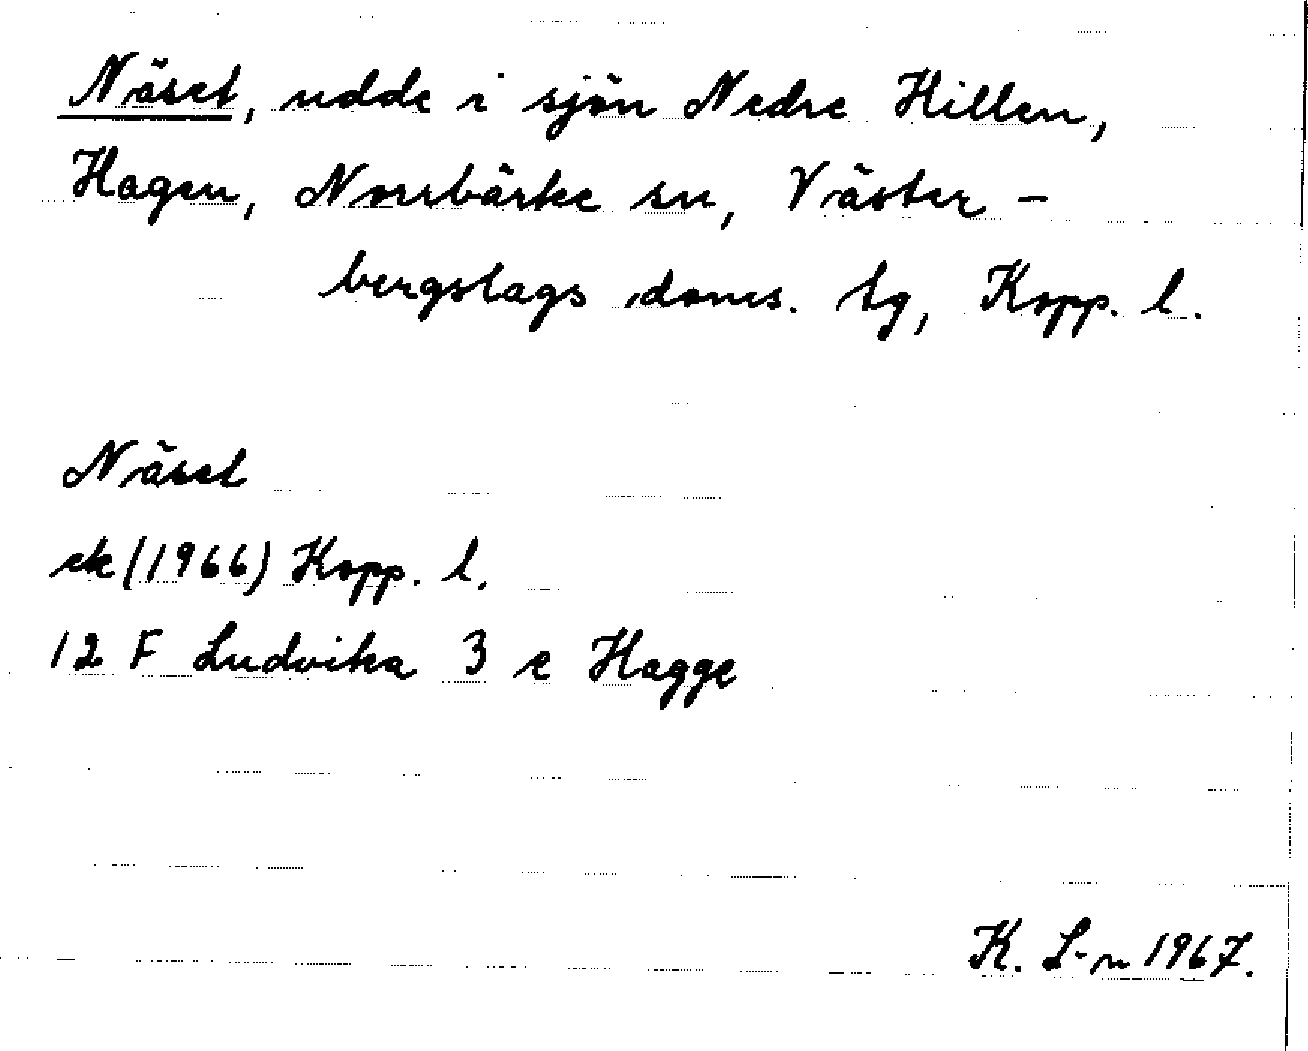 Näset, udde i sjön Nedre Hillen,
Hagen, Norrbärke sn, Väster-
bergslags doms. tg, Kopp. l.
Näset
ek (1966) Kopp. l.
12 F Ludvika 3 e Hagge
K. L-n 1967.